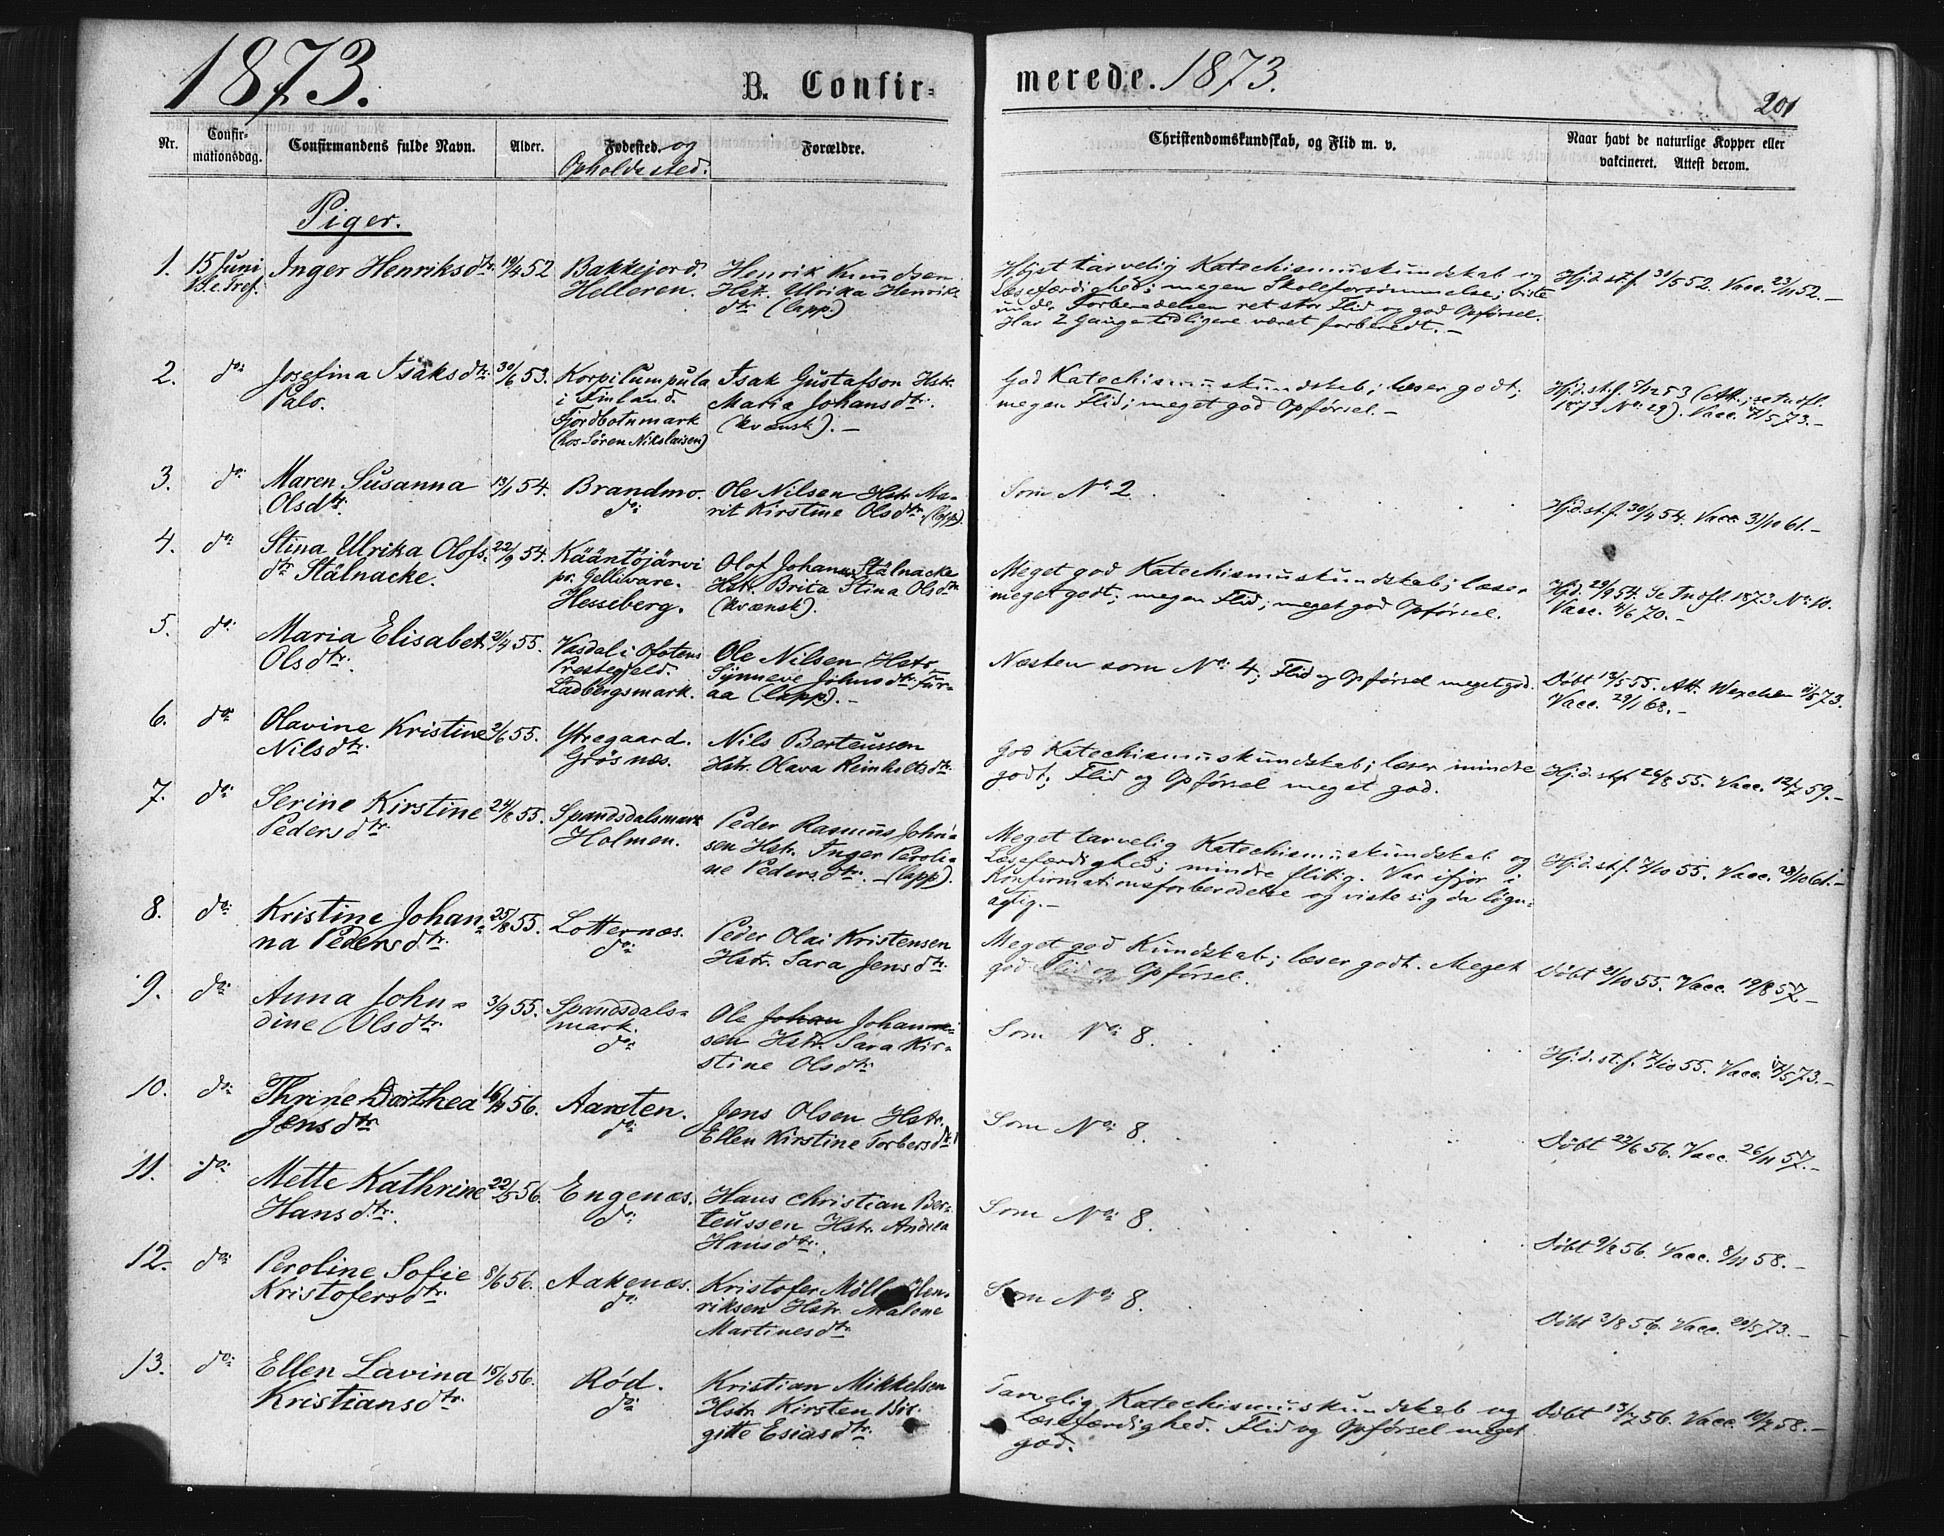 1873.
B. Confir-
merede. 1873.
201
Nr.
Confir-
mationsdag.
Confirmandens fulde Navn.
Alder.
Fødested. og
Opholdssted.
Forældre.
Christendomskundskab, og Flid m. v.
Naar havt de naturlige Kopper eller
vakcineret. Attest derom.
Piger.
1. 15 Juni
Inger Henriksdtr.
19/4 52
Bakkejord.
Helleren.
Henrik Knudsen
Hstr. Ulrika Henriks
dtr. (lapp.)
Høist tarvelig Katechismuskundskab og
Læsefærdighed; megen Skoleforsømmelse; viste
under Forberedelsen ret stor Flid og god Opførsel.
Har 2 Gange tidligere været forberedt. -
Hjd. stf. 30/5 52. Vacc. 23/11 52. -
2. do:
Josefina Isaksdtr.
Palo.
30/6 53.
Korpilumpula
i Finland.
Fjordbotnmark
(hos Sören Nikolaisen)
Isak Gustafson Hstr.
Maria Johansdtr.
(kvænsk). -
God Katechismuskundskab; læser godt;
megen Flid; meget god Opførsel. -
Hjd. stf. 5/12 53 (Att.; se Indfl.
1873 No: 29). Vacc. 7/5 73. -
3. do:
Maren Susanna
Olsdtr.
13/1 54.
Brandmo.
do:
Ole Nilsen Hstr. Ma-
rit Kirstine Olsdtr. (lapp.)
Som No: 2.
Hjd. st. f. 30/4 54. Vacc. 31/10 61. -
4. do:
Stina Ulrika Olofs-
dtr. Stålnacke.
22/9 54.
Kääntöjärvi
pr. Gellivare.
Hesseberg.
Olof Johansen Stålnacke
Hstr. Brita Stina Olsdtr.
(kvænsk).
Meget god Katechismuskundskab; læser
meget godt; megen Flid; meget god Opførsel.
Hjd. 29/9 54. Se Indfl. 1873 No: 10.
Vacc. 4/6 70. -
5. do:
Maria Elisabet
Olsdtr.
21/4 55.
Vasdal i Ofotens
Prestegjeld.
Ladbergsmark.
Ole Nilsen Hstr.
Synneve Johnsdtr. Fur-
aa (lapp.). -
Næsten som No: 4; Flid og Opførsel meget god.
Døbt 19/5 55. Att. Wexelsen 73.
Vacc. 29/1 68. -
6. do:
Olavine Kristine
Nilsdtr.
2/6 55.
Ytregaard.
Grösnæs.
Nils Berteussen
Hstr. Olava Reinholtsdtr.
God Katechismuskundskab; læser mindre
godt; Flid og Opførsel meget god.
Hjd. stf 26/8 55. Vacc. 12/7 59. -
7. do:
Serine Kirstine
Pedersdtr.
24/8 55.
Spandsdalsmark
Holmen.
Peder Rasmus Johan-
sen Hstr. Inger Peroli-
ne Pedersdtr. - (lapp).
Meget tarvelig Katechismuskundskab og
Læsefærdighed; mindre flittig. Var ifjor i
Konfirmationsforberedelse og viste sig da løgn-
agtig. -
Hjd. st. f. 7/10 55. Vacc. 28/10 61. -
8. do:
Kristine Johan-
na Pedersdtr.
25/8 55.
Lotternæs.
do:
Peder Olai Kristensen
Hstr. Sara Jensdtr.
Meget god Kundskab; læser godt. Meget
god Flid og Opførsel.
Døbt 21/10 55. Vacc. 19/8 57. -
9. do:
Anna John-
dine Olsdtr.
3/9 55.
Spandsdals-
mark.
do:
Ole Johan Johanne-
sen Hstr. Sara Kir-
stine Olsdtr.
Som No: 8.
Hjd. st. f. 7/10 55. Vacc. 73. -
10. do:
Thrine Dorthea
Jensdtr.
56.
Aarsten.
do:
Jens Olsen Hstr.
Ellen Kirstine Torbersdtr.
Som No: 8.
Døbt 22/6 56. Vacc. 26/11 57. -
11. do:
Mette Kathrine
Hansdtr.
22/5 56.
Engenæs.
do:
Hans Christian Ber-
teussen Hstr. Andrea
Hansdtr.
Som No: 8.
Døbt 9/8 56. Vacc. 8/11 58. -
12. do:
Peroline Sofie
Kristofersdtr.
8/6 56.
Aakenæs.
do:
Kristofer Möll Hen-
riksen Hstr. Malene
Martinesdtr.
Som No: 8.
Døbt 2/8 56. Vacc. 20/5 73. -
13. do:
Ellen Lavina
Kristiansdtr.
15/6 56.
Rød.
do:
Kristian Mikkelsen
Hstr. Kirsten Bir-
gitte Esiasdtr.
Tarvelig Katechismuskundskab og
Læsefærdighed. Flid og Opførsel meget
god.
Døbt 13/7 56. Vacc. 10/7 58. -